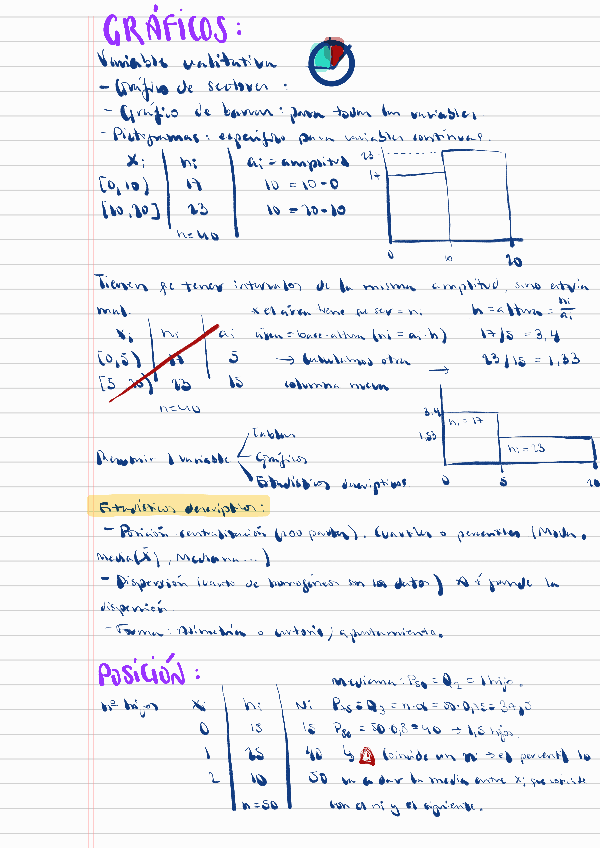 GRÁFICOS:
Variable cualitativa
- Gráfico de sectores:
- Gráfico de barras: para todas las variables.
- Pictogramas: específico para variables contínuas.
xi ni ai = amplitud
[0,10) 17 10 = 10-0
[10,20] 23 10 = 20-10
n=40
23
17
0 10 20
Tienen qe tener intervalos de la misma amplitud, sino estaría
mal. x el área tiene qe ser = ni. h = altura = ni/ai
xi ni ai área = base·altura (ni = ai·h) 17/5 = 3,4
[0,5) 17 5 → Calculamos otra 23/15 = 1,33
[5,20) 23 15 columna nueva →
n=40
3,4
1,33
ni = 17
ni = 23
0 5 20
Resumir 1 variable
Tablas
Gráficos
Estadísticos descriptivos
Estadísticos descriptivos:
- Posición centralización (100 partes). Cuartiles o percentiles (Moda,
media (x̄), Mediana...)
- Dispersión (cuánto de homogéneos son los datos)
dispersión.
- Forma: Asimetría o curtosis; apuntamiento.
POSICIÓN:
mediana: P50 = Q2 = 1 hijo.
nº hijos xi ni Ni P75 = Q3 = n·α = 50·0,75 = 37,5
0 15 15 P80 = 50·0,8 = 40 → 1,5 hijos.
1 25 40 ↳ Coincide un ni → el percentil lo
2 10 50 va a dar la media entre xi que coincide
n=50 con el ni y el siguiente.